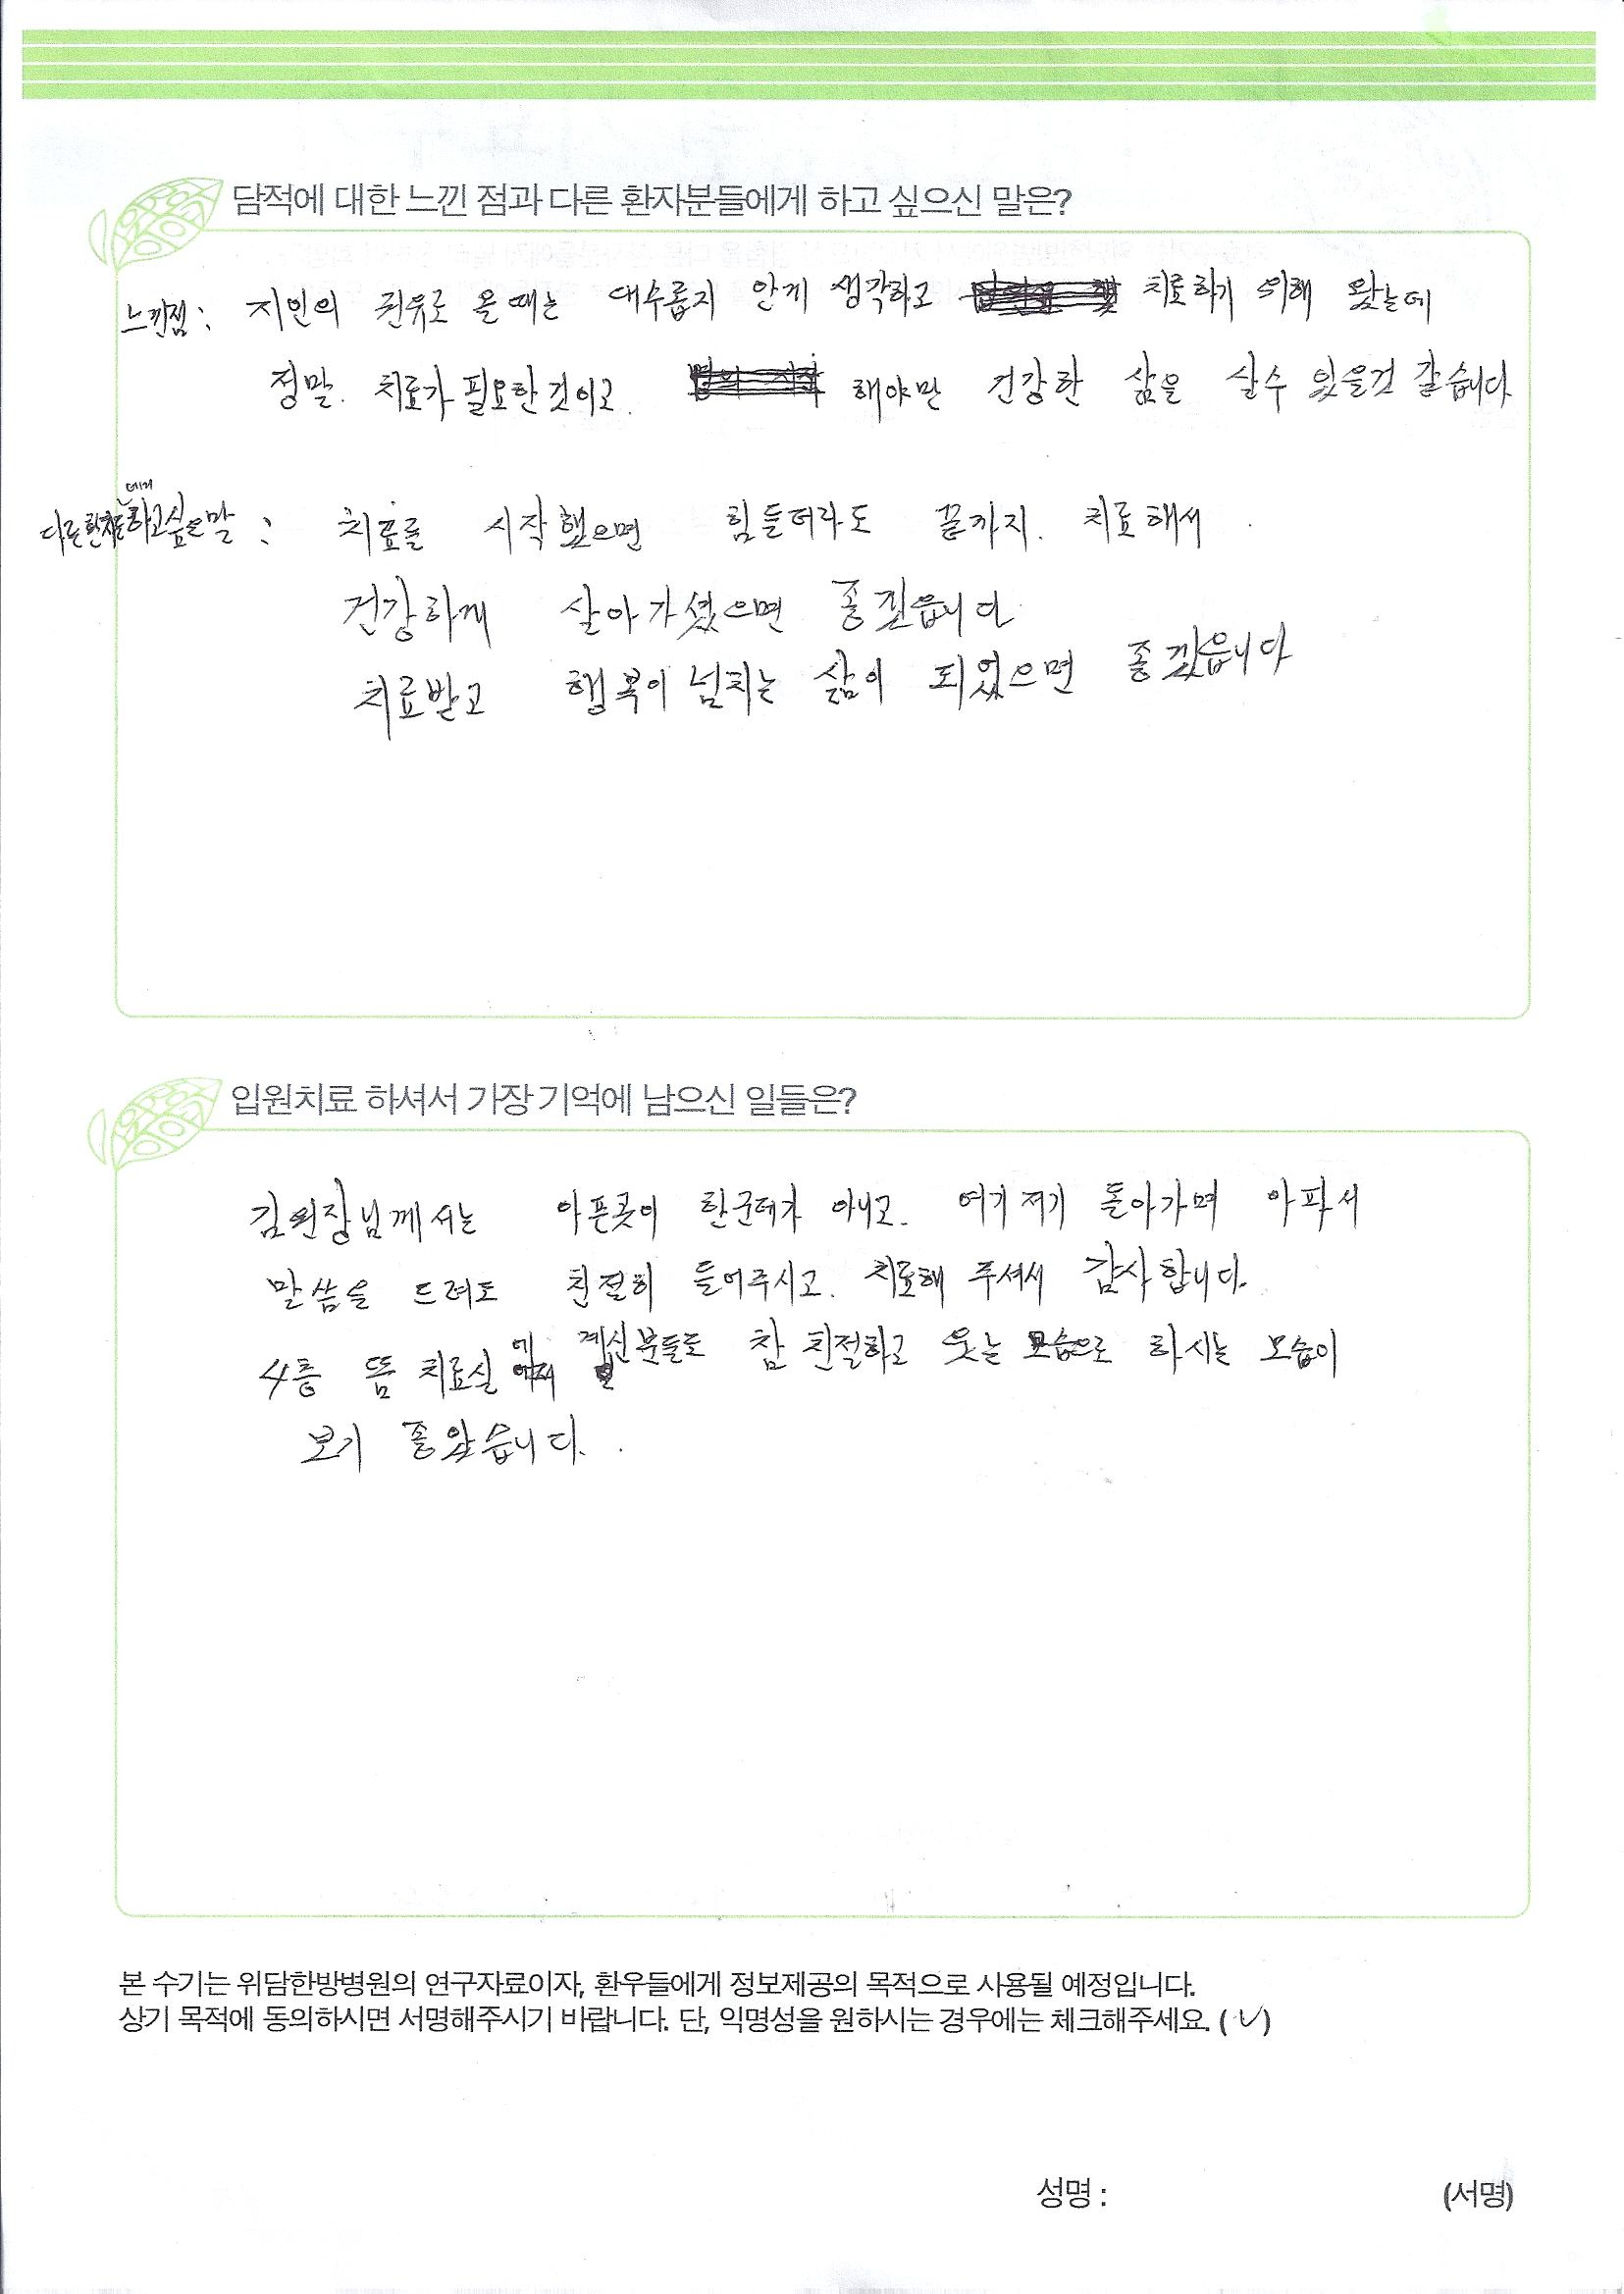 담적에 대한 느낀 점과 다른 환자분들에게 하고 싶으신 말은?
느낀점: 지인의 권유로 올때는 대수롭지 안게 생각하고 치료하기 위해 왔는데
정말. 치료가 필요한것이고. 해야만 건강한 삶을 살수 있을것 같습니다
다른환자들데게 하고싶은말: 치료를 시작했으면 힘들더라도 끝까지. 치료해서.
건강하게 살아가셨으면 좋겠읍니다
치료받고 행복이 넘치는 삶이 되었으면 좋겠읍니다
입원치료 하셔서 가장 기억에 남으신 일들은?
김원장님께서는 아픈곳이 한군데가 아니고. 여기저기 돌아가며 아파서
말씀을 드려도 친절히 들어주시고. 치료해 주셔서 감사합니다.
4층 뜸 치료실에 계신분들도 참 친절하고 웃는 모습으로 하시는 모습이
보기 좋았습니다..
본 수기는 위담한방병원의 연구자료이자, 환우들에게 정보제공의 목적으로 사용될 예정입니다.
상기 목적에 동의하시면 서명해주시기 바랍니다. 단, 익명성을 원하시는 경우에는 체크해주세요. (✓)
성명 : (서명)